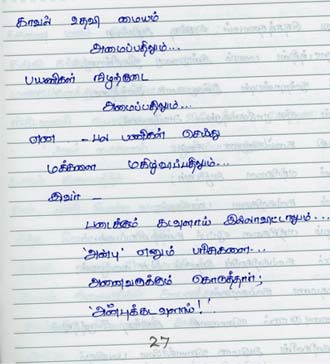 காவல் உதவி மையம்
அமைப்பதிலும்...
பயணிகள் நிழற்குடை
அமைப்பதிலும்...
என - பல பணிகள் செய்து
மக்களை மகிழ்விப்பதிலும்...
இவர் -
படைக்கும் கடவுளாய் இல்லாவிட்டாலும்...
'அன்பு' எனும் பரிசுகளை...
அனைவருக்கும் கொடுத்தார்;
'அன்புக்கடவுளாய்!'
27